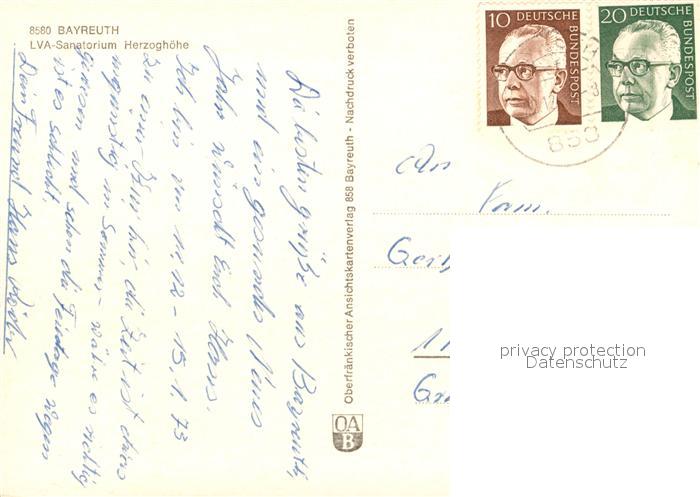 8580 BAYREUTH
LVA-Sanatorium Herzoghöhe
10 DEUTSCHE BUNDESPOST
20 DEUTSCHE BUNDESPOST
858
Oberfränkischer Ansichtskartenverlag 858 Bayreuth - Nachdruck verboten
OAB
grüße aus Bayreuth,
und ein gesundes Neues
Jahr wünscht Euch Hans.
Ich bin vom 11.12 - 15.1.73
zu einer Kur hier, die Zeit ist etwas
ungünstig im Sommer - wäre es richtig
und die Feiertage wegen
ist es schlecht.
Dein Freund Hans
An
Fam.
11
privacy protection
Datenschutz